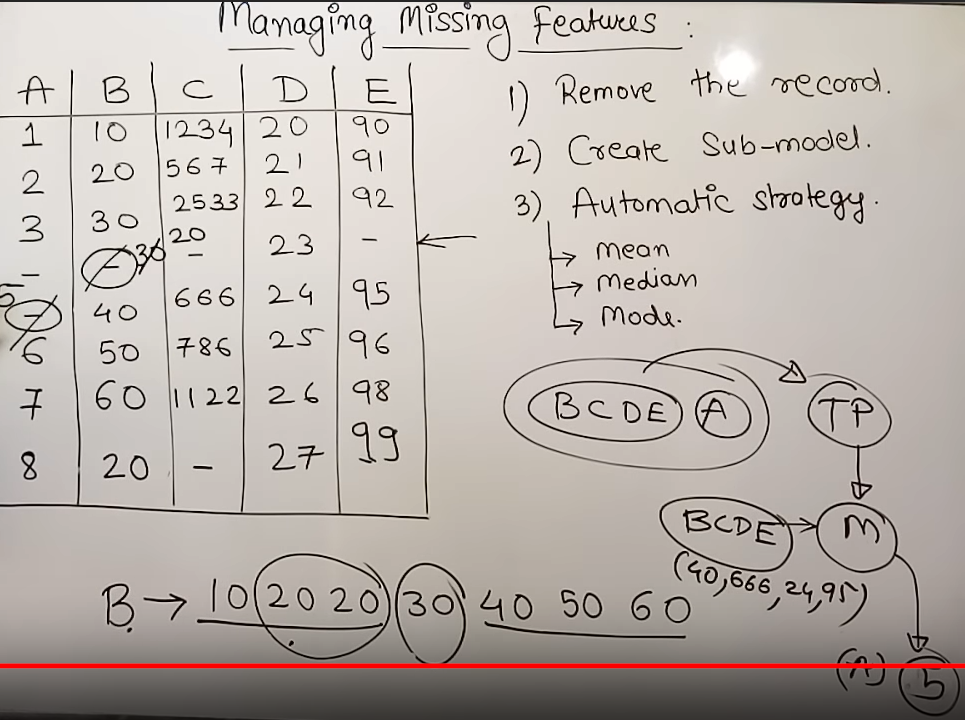 Managing Missing Features :
A B C D E
1 10 1234 20 90
2 20 567 21 91
3 30 2533 22 92
- - 30 20 - 23 -
5 - 40 666 24 95
6 50 786 25 96
7 60 1122 26 98
8 20 - 27 99
1) Remove the record.
2) Create Sub-model.
3) Automatic strategy.
→ mean
→ median
→ Mode.
BCDE A TP
BCDE → M
(40,666,24,95)
B → 10 20 20 30 40 50 60
(A) 5